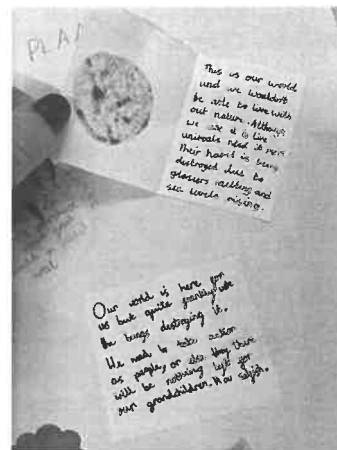 PLAN
This is our world
and we wouldn't
be able to live with
out nature. Although
we use it to live
animals need it more.
Their habitat is being
destroyed due to
glaciers melting and
sea levels rising.
Our world is here for
us but quite frankly we
the beings destroying it.
We need to take action
as people, or else they there
will be nothing left for
our grandchildren. How selfish.